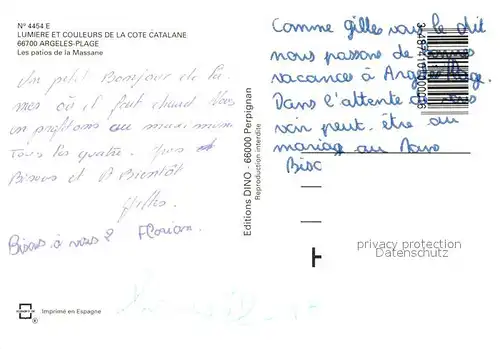 N° 4454 E
LUMIERE ET COULEURS DE LA COTE CATALANE
66700 ARGELES-PLAGE
Les patios de la Massane
Un petit Bonjour de
où il fait chaud. Nous
en profitons au maximum
Tous les quatre. Gros
Bisous et A Bientôt
Gilles.
Bisous à vous 2 Florian.
Imprimé en Espagne
Editions DINO - 66000 Perpignan
Reproduction interdite
Comme gilles vous le dit
nous passons de bonnes
vacances à Argeles Plage.
Dans l'attente de vous
voir peut-être au
mariage au
privacy protection
Datenschutz